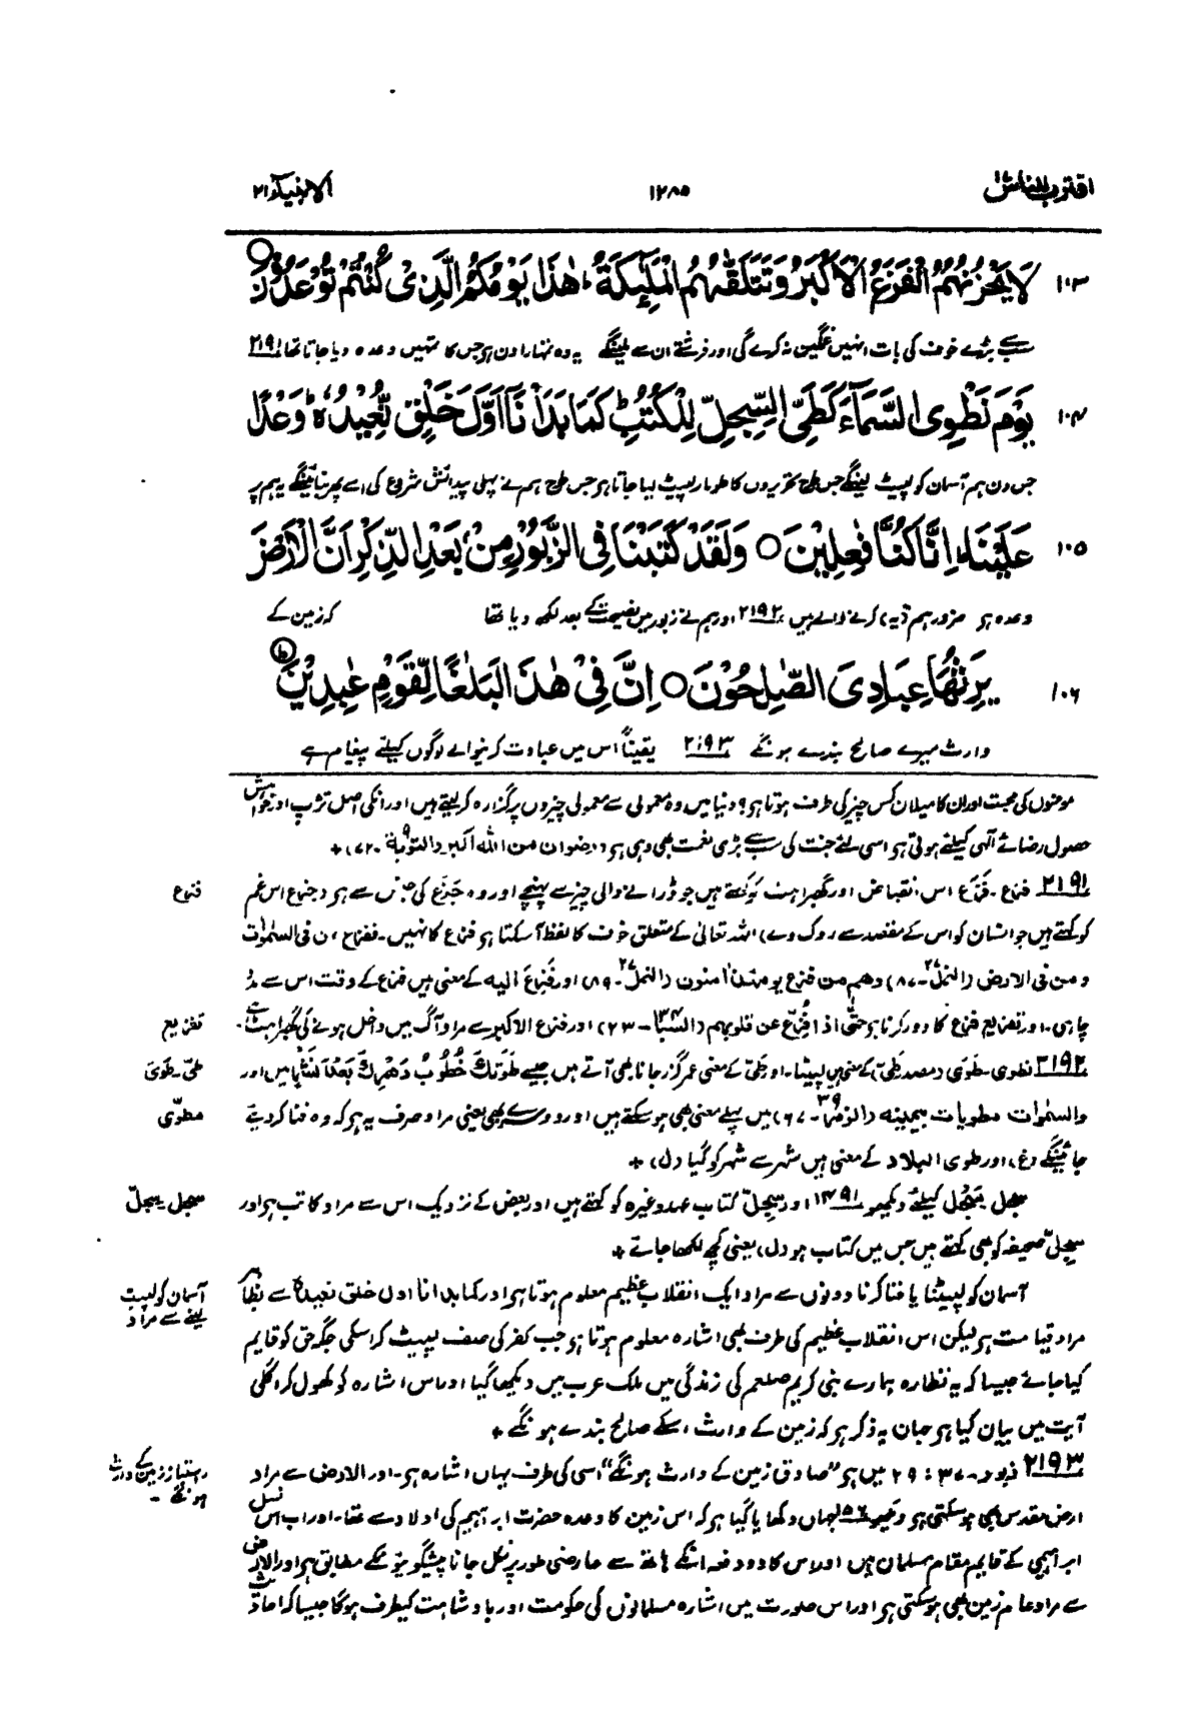 اقترب للناس ۱۷ ۱۲۸۵ الانبیآء ۲۱
۱۰۳ لَا یَحْزُنُهُمُ الْفَزَعُ الْاَكْبَرُ وَتَتَلَقّٰىهُمُ الْمَلٰٓئِكَةُ ؕ هٰذَا یَوْمُكُمُ الَّذِیْ كُنْتُمْ تُوْعَدُوْنَ ○
سب سے بڑے خوف کی بات انہیں غمگین نہ کرے گی اور فرشتے ان سے ملینگے یہ وہ تمہارا دن ہو جس کا تمہیں وعدہ دیا جاتا تھا ۲۱۹۱
۱۰۴ یَوْمَ نَطْوِی السَّمَآءَ كَطَیِّ السِّجِلِّ لِلْكُتُبِ ؕ كَمَا بَدَاْنَاۤ اَوَّلَ خَلْقٍ نُّعِیْدُهٗ ؕ وَعْدًا
جس دن ہم آسمان کو لپیٹ لینگے جس طرح تحریروں کا طومار لپیٹ لیا جاتا ہو جس طرح ہم نے پہلی پیدائش شروع کی اسے پھر بنائینگے یہ ہم پر
۱۰۵ عَلَیْنَا ؕ اِنَّا كُنَّا فٰعِلِیْنَ ○ وَلَقَدْ كَتَبْنَا فِی الزَّبُوْرِ مِنْۢ بَعْدِ الذِّكْرِ اَنَّ الْاَرْضَ
وعدہ ہو ضرور ہم (یہ) کرنے والے ہیں ۲۱۹۲ اور ہم نے زبور میں نصیحت کے بعد لکھ دیا تھا کہ زمین کے
۱۰۶ یَرِثُهَا عِبَادِیَ الصّٰلِحُوْنَ ○ اِنَّ فِیْ هٰذَا لَبَلٰغًا لِّقَوْمٍ عٰبِدِیْنَ ○
وارث میرے صالح بندے ہونگے ۲۱۹۳ یقیناً اس میں عبادت کرنیوالے لوگوں کیلئے پیغام ہے
مومنوں کی محبت اور ان کا میلان کس چیز کی طرف ہوتا ہو؟ دنیا میں وہ معمولی سے معمولی چیزوں پر گزارہ کر لیتے ہیں اور انکی اصل تڑپ اور خواہش
حصول رضائے الٰہی کیلئے ہوتی ہو اسی لئے جنت کی سب سے بڑی نعمت بھی وہی ہو ورضوان من اللہ اکبر (التوبۃ ۹۔۷۲) +
۲۱۹۱ فزع ۔ فَزَع اس انقباض اور گھبراہٹ کو کہتے ہیں جو ڈرانے والی چیز سے پہنچے اور وہ جَزَع کی جنس سے ہو (جزع اس غم
فزع
کو کہتے ہیں جو انسان کو اس کے مقصد سے روک دے) اللہ تعالیٰ کے متعلق خوف کا لفظ آسکتا ہو فزع کا نہیں ۔ ففزع من فی السمٰوٰت
ومن فی الارض (النمل ۲۷۔۸۷) وهم من فزع یومئذ اٰمنون (النمل ۲۷۔۸۹) اور فَزِعَ الیہ کے معنی ہیں فزع کے وقت اس سے مدد
چاہی ۔ اور تفزیع فزع کا دور کرنا ہو حتّٰی اذا فُزِّعَ عن قلوبهم (السبا ۳۴۔۲۳) اور فزع الاکبر سے مراد آگ میں داخل ہونے کی گھبراہٹ ہے ۔
تفزیع
۲۱۹۲ نطوی ۔ طَوٰی (مصدر طَیّ) کے معنی ہیں لپیٹا ۔ اور طَیّ کے معنی عمر گزر جانا بھی آتے ہیں جیسے طَوَتْكَ خُطُوْبُ دَهْرِكَ بَعْدَ نَشْرٍ میں اور
طیّ ۔ طَوٰی
والسمٰوات مطویات بیمینه (الزمر ۳۹۔۶۷) میں پہلے معنی بھی ہو سکتے ہیں اور دوسرے بھی یعنی مراد صرف یہ ہو کہ وہ فنا کر دیئے
مطوّی
جائینگے (غ) اور طوی البلاد کے معنی ہیں شہر سے شہر کو گیا (ل) +
سجل یَسْجُل کیلئے دیکھو ۱۴۹۱ اور سِجِلّ کتاب عہد وغیرہ کو کہتے ہیں اور بعض کے نزدیک اس سے مراد کاتب ہو اور
سجل ۔ سِجِلّ
سِجِلّ صحیفہ کو بھی کہتے ہیں جس میں کتاب ہو (ل) یعنی کچھ لکھا جائے +
آسمان کو لپیٹنا یا فنا کرنا دونوں سے مراد ایک انقلاب عظیم معلوم ہوتا ہو اور كما بدانا اول خلق نعیدہ سے بظاہر
آسمان کو لپیٹ
لینے سے مراد
مراد قیامت ہو لیکن اس انقلاب عظیم کی طرف بھی اشارہ معلوم ہوتا ہو جب کفر کی صف لپیٹ کر اسکی جگہ حق کو قایم
کیا جائے جیسا کہ یہ نظارہ ہمارے نبی کریم صلعم کی زندگی میں ملک عرب میں دیکھا گیا اور اس اشارہ کو کھول کر اگلی
آیت میں بیان کیا ہو جہاں یہ ذکر ہو کہ زمین کے وارث اسکے صالح بندے ہونگے +
۲۱۹۳ زبور ۔ ۳۷ : ۲۹ میں ہو ”صادق زمین کے وارث ہونگے“ اسی کی طرف یہاں اشارہ ہو ۔ اور الارض سے مراد
رہتباز زمین کے وارث
ہونگے ۔
ارض مقدس بھی ہو سکتی ہو جہاں دکھایا گیا ہو کہ اس زمین کا وعدہ حضرت ابراہیم کی اولاد سے تھا ۔ اور اب اس نسل
ابراہیمی کے قایم مقام مسلمان ہیں اور اس کا دو دفعہ انکے ہاتھ سے عارضی طور پر نکل جانا پیشگوئیوں کے مطابق ہو اور الارض
سے مراد عام زمین بھی ہو سکتی ہو اور اس صورت میں اشارہ مسلمانوں کی حکومت اور بادشاہت کیطرف ہو گا جیسا کہ احادیث